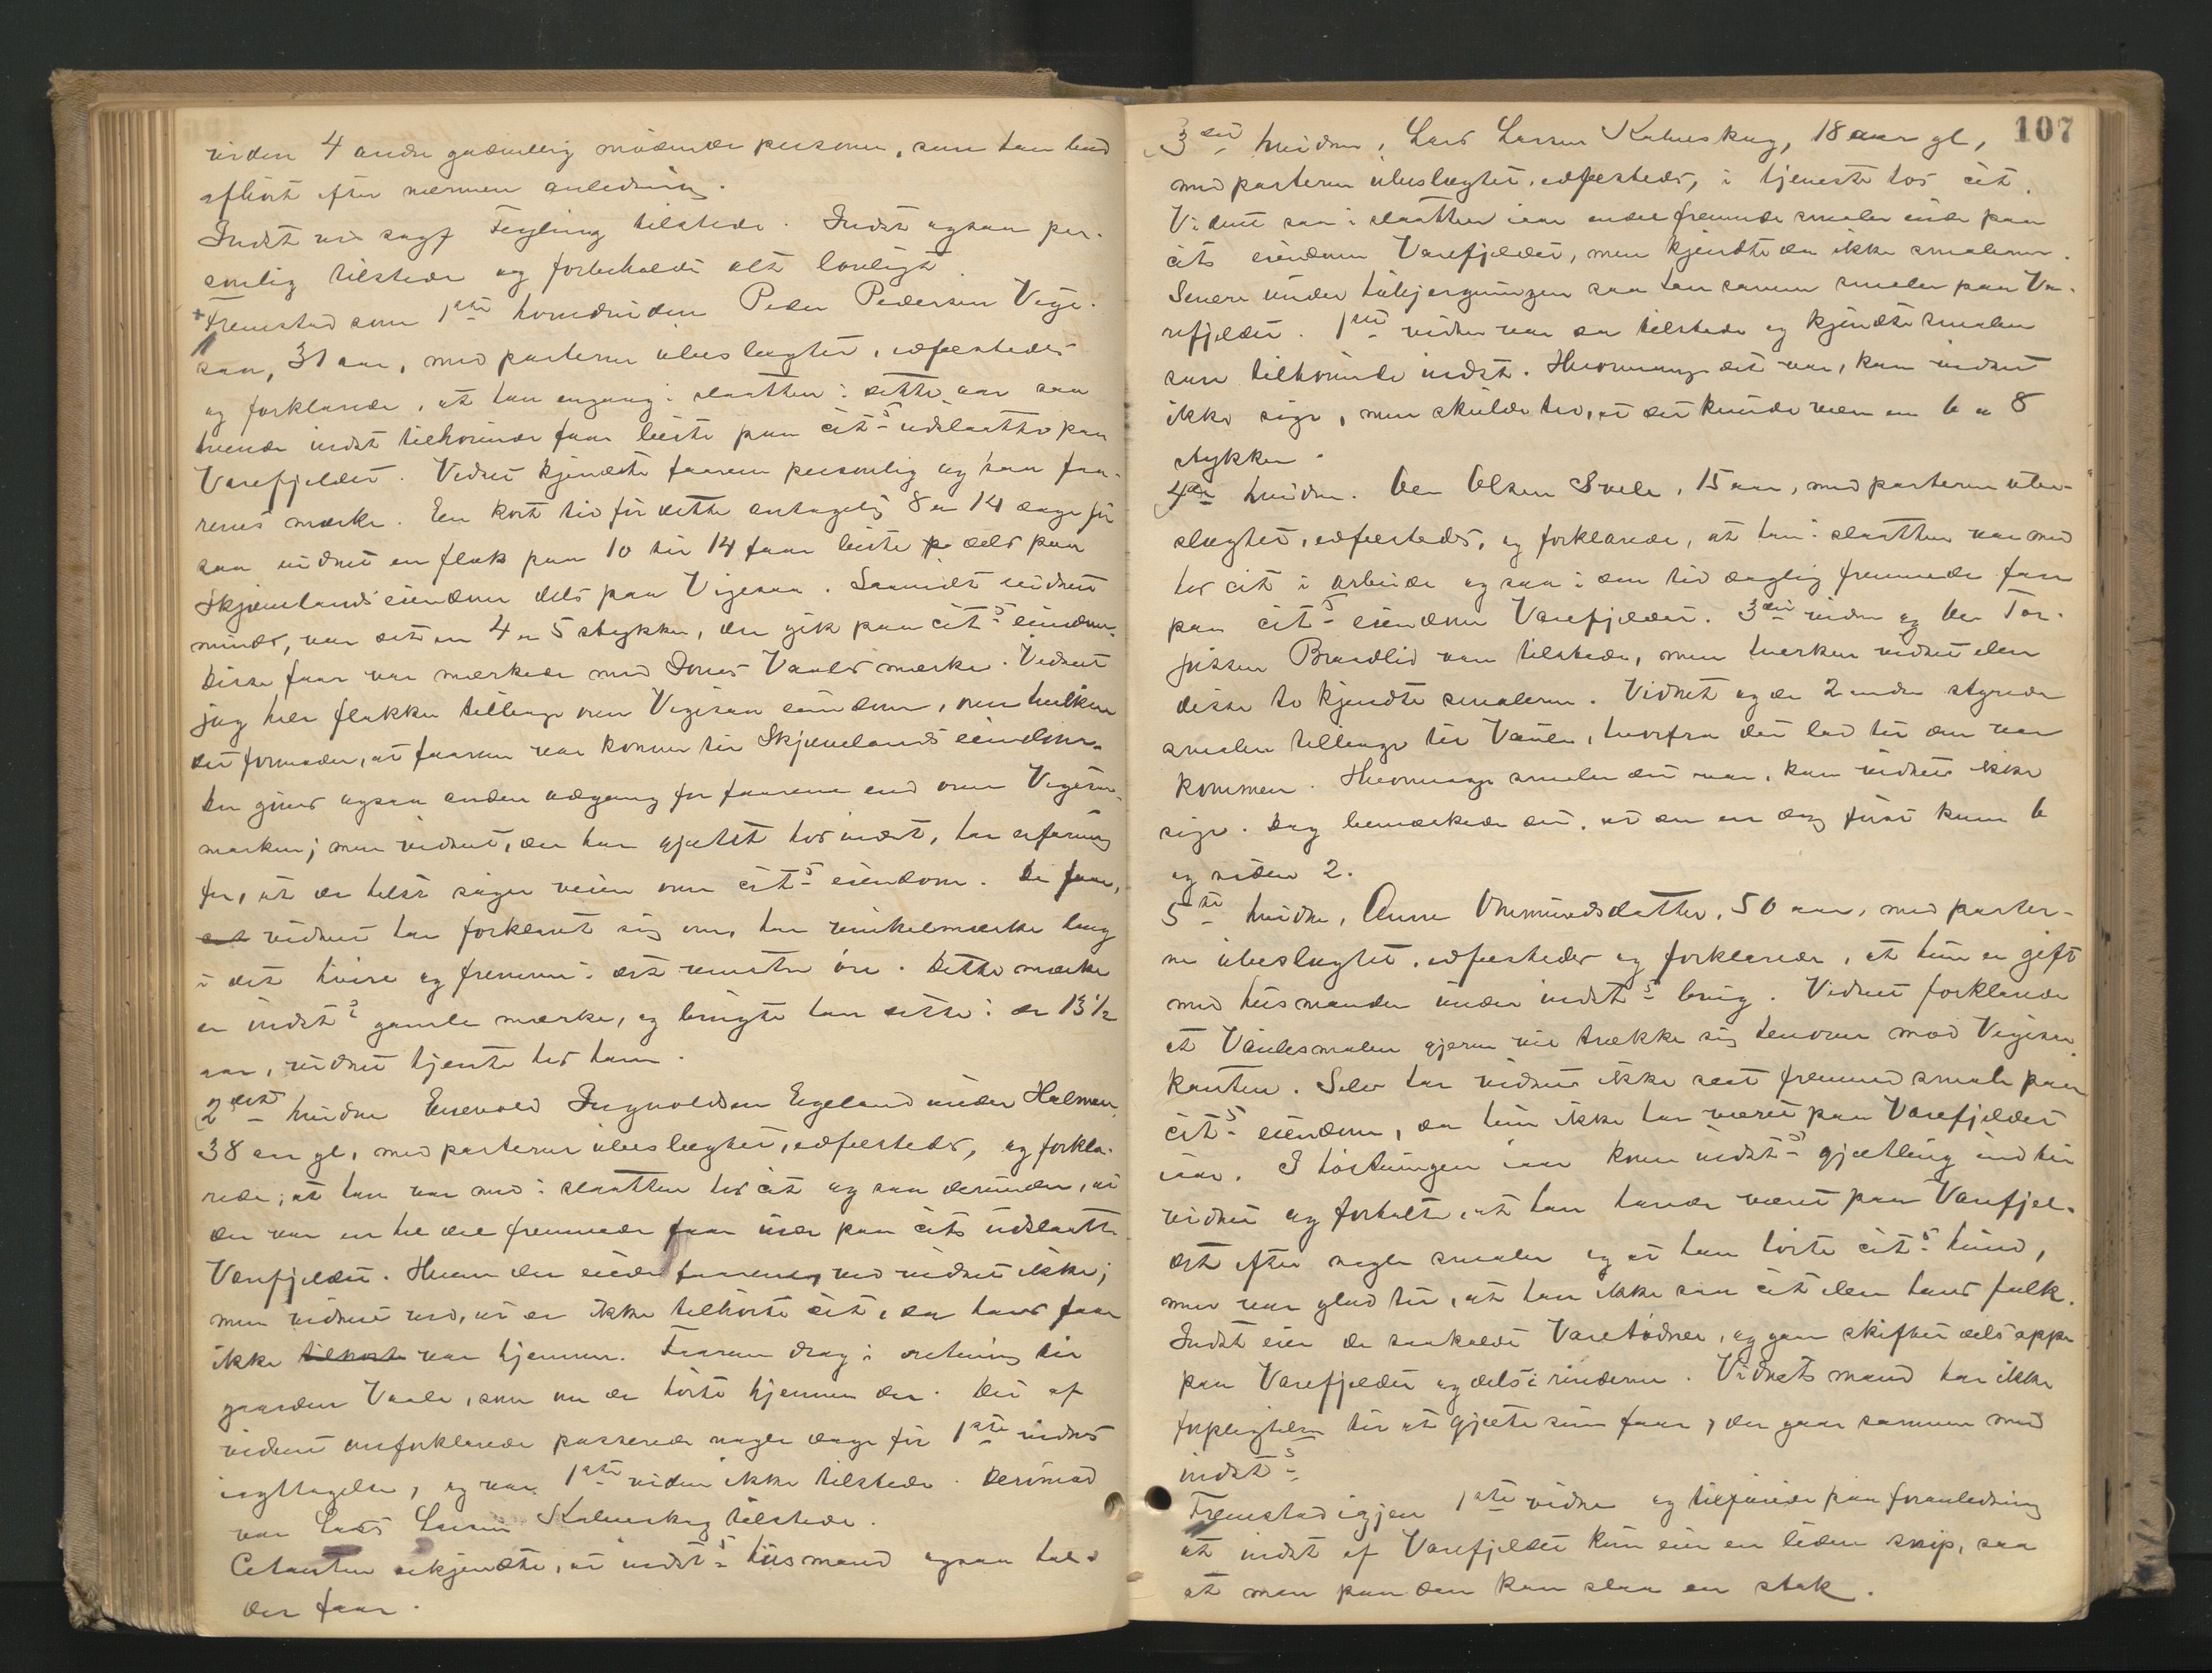 viden 4 andre godvillig mødende personer, som han bad
afhørt efter nærmere anledning.
Indst ved sagf Feyling tilstede. Indst ogsaa per-
sonlig tilstede og forbeholdt alt lovligt.
Fremstod som 1ste hovedviden Peder Pedersen Vige-
saa, 31 aar, med parterne ubeslægtet, edfæstedes
og forklarede, at han engang i slaatten i dette aar saa
tvende indst tilhørende faar beite paa cit.s udslaatte paa
Varefjeldet. Vidnet kjendte faarene personlig og saa faa-
renes mærke. En kort tid før dette antagelig 8 a 14 dage før
saa vidnet en flok paa 10 til 14 faar beite dels paa
Skjævelands eiendom dels paa Vigesaa. Saavidt vidnet
mindes, var det en 4 a 5 stykker, der gik paa cit.s eiendom.
Disse faar var mærkede med Jonas Vaules mærke. Vidnet
jog hele flokken tilbage over Vigesaa eiendom, over hvilken
det formoder, at faarene var kommen til Skjævelands eiendom.
Der gives ogsaa anden adgang for faarene end over Vigesaa-
marken; men vidnet, der har gjætet hos indst, har erfaring
for, at de helst søger veien over cit.s eiendom. De faar,
vidnet har forklaret sig om, har vinkelmærke bag
i det høire og fremme i det venstre øre. Dette mærke
er indst.s gamle mærke, og brugte han dette i de 13 1/2
aar, vidnet tjente hos ham.
2det hvidne Enevold Ingvaldsen Egeland under Helmen,
38 aar gl, med parterne ubeslægtet, edfæstedes, og forkla-
rede, at han var med i slaatten hos cit og saa derunder, at
der var en hel del fremmede faar inde paa cits udslaatte
Varefjeldet. Hvem der eiede faarene, ved vidnet ikke;
men vidnet ved, at de ikke tilhørte cit, da hans faar
ikke tilhørte var hjemme. Faarene drog i retning til
gaarden Vaule, som om de hørte hjemme der. Det af
vidnet omforklarede passerede nogle dage før 1ste vidnes
iagttagelse, og var 1ste viden ikke tilstede. Derimod
var Lars Larsen Kalveskag tilstede.
Citanten erkjendte, at indst.s husmand ogsaa hol-
der faar.
107
3die hvidne, Lars Larsen Kalveskag, 18 aar gl,
med parterne ubeslægtet, edfæstedes, i tjeneste hos cit.
Vidnet saa i slaatten iaar endel fremmede smaler inde paa
cits eiendom Varefjeldet, men kjendte da ikke smalerne.
Senere under høbjergningen saa han samme smaler paa Va-
refjeldet. 1ste vidne var da tilstede og kjendte smalen
som tilhørende indst. Hvormange det var, kan vidnet
ikke sige, men skulde tro, at det kunde være en 6 a 8
stykker.
4de hvidne. Ole Olsen Svele, 15 aar, med parterne ube-
slægtet, edfæstedes, og forklarede, at han i slaatten var med
hos cit i arbeide og saa i den tid daglig fremmede faar
paa cit.s eiendom Varefjeldet. 3die vidne og Ole Tor-
jussen Braadlid var tilstede, men hverken vidnet eller
disse to kjendte smalerne. Vidnet og de 2 andre styrede
smalen tilbage til Vaule, hvorfra det lod til den var
kommen. Hvormange smaler det var, kan vidnet ikke
sige. Dog bemærkede det, at der en dag først kom 6
og siden 2.
5te hvidne, Anne Ommundsdatter, 50 aar, med parter-
ne ubeslægtet, edfæstedes og forklarede, at hun er gift
med husmanden under indst.s brug. Vidnet forklarede
at Vaulesmalen gjerne vil trække sig henover mod Vigesaa
kanten. Selv har vidnet ikke seet fremmed smale paa
cit.s eiendom, da hun ikke har været paa Varefjeldet
iaar. I høstningen iaar kom indst.s gjætling ind til
vidnet og fortalte, at han havde været paa Varefjel-
det efter nogle smaler og at han hørte cit.s hund,
men var glad til, at han ikke saa cit eller hans folk.
Indst eier de saakaldte Varetødner, og gaar skiftet dels oppe
paa Varefjeldet og dels i rinderne. Vidnets mand har ikke
forpligtelse til at gjæte sine faar, der gaar sammen med
indst.s
Fremstod igjen 1ste vidne og tilføiede paa foranledning
at indst af Varefjeldet kun eier en liden snip, saa
at man paa den kan slaa en stak.